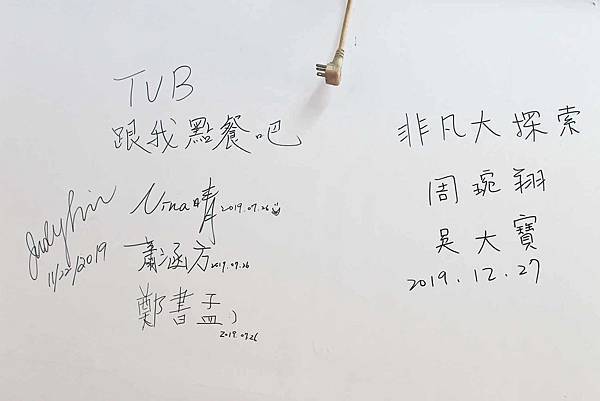 TVB
跟我點餐吧
Nina晴 2019.07.26
蕭涵方 2019.07.26
鄭書孟 2019.07.26
Judy
11/22/2019
非凡大探索
周琬翔
吳大寶
2019.12.27